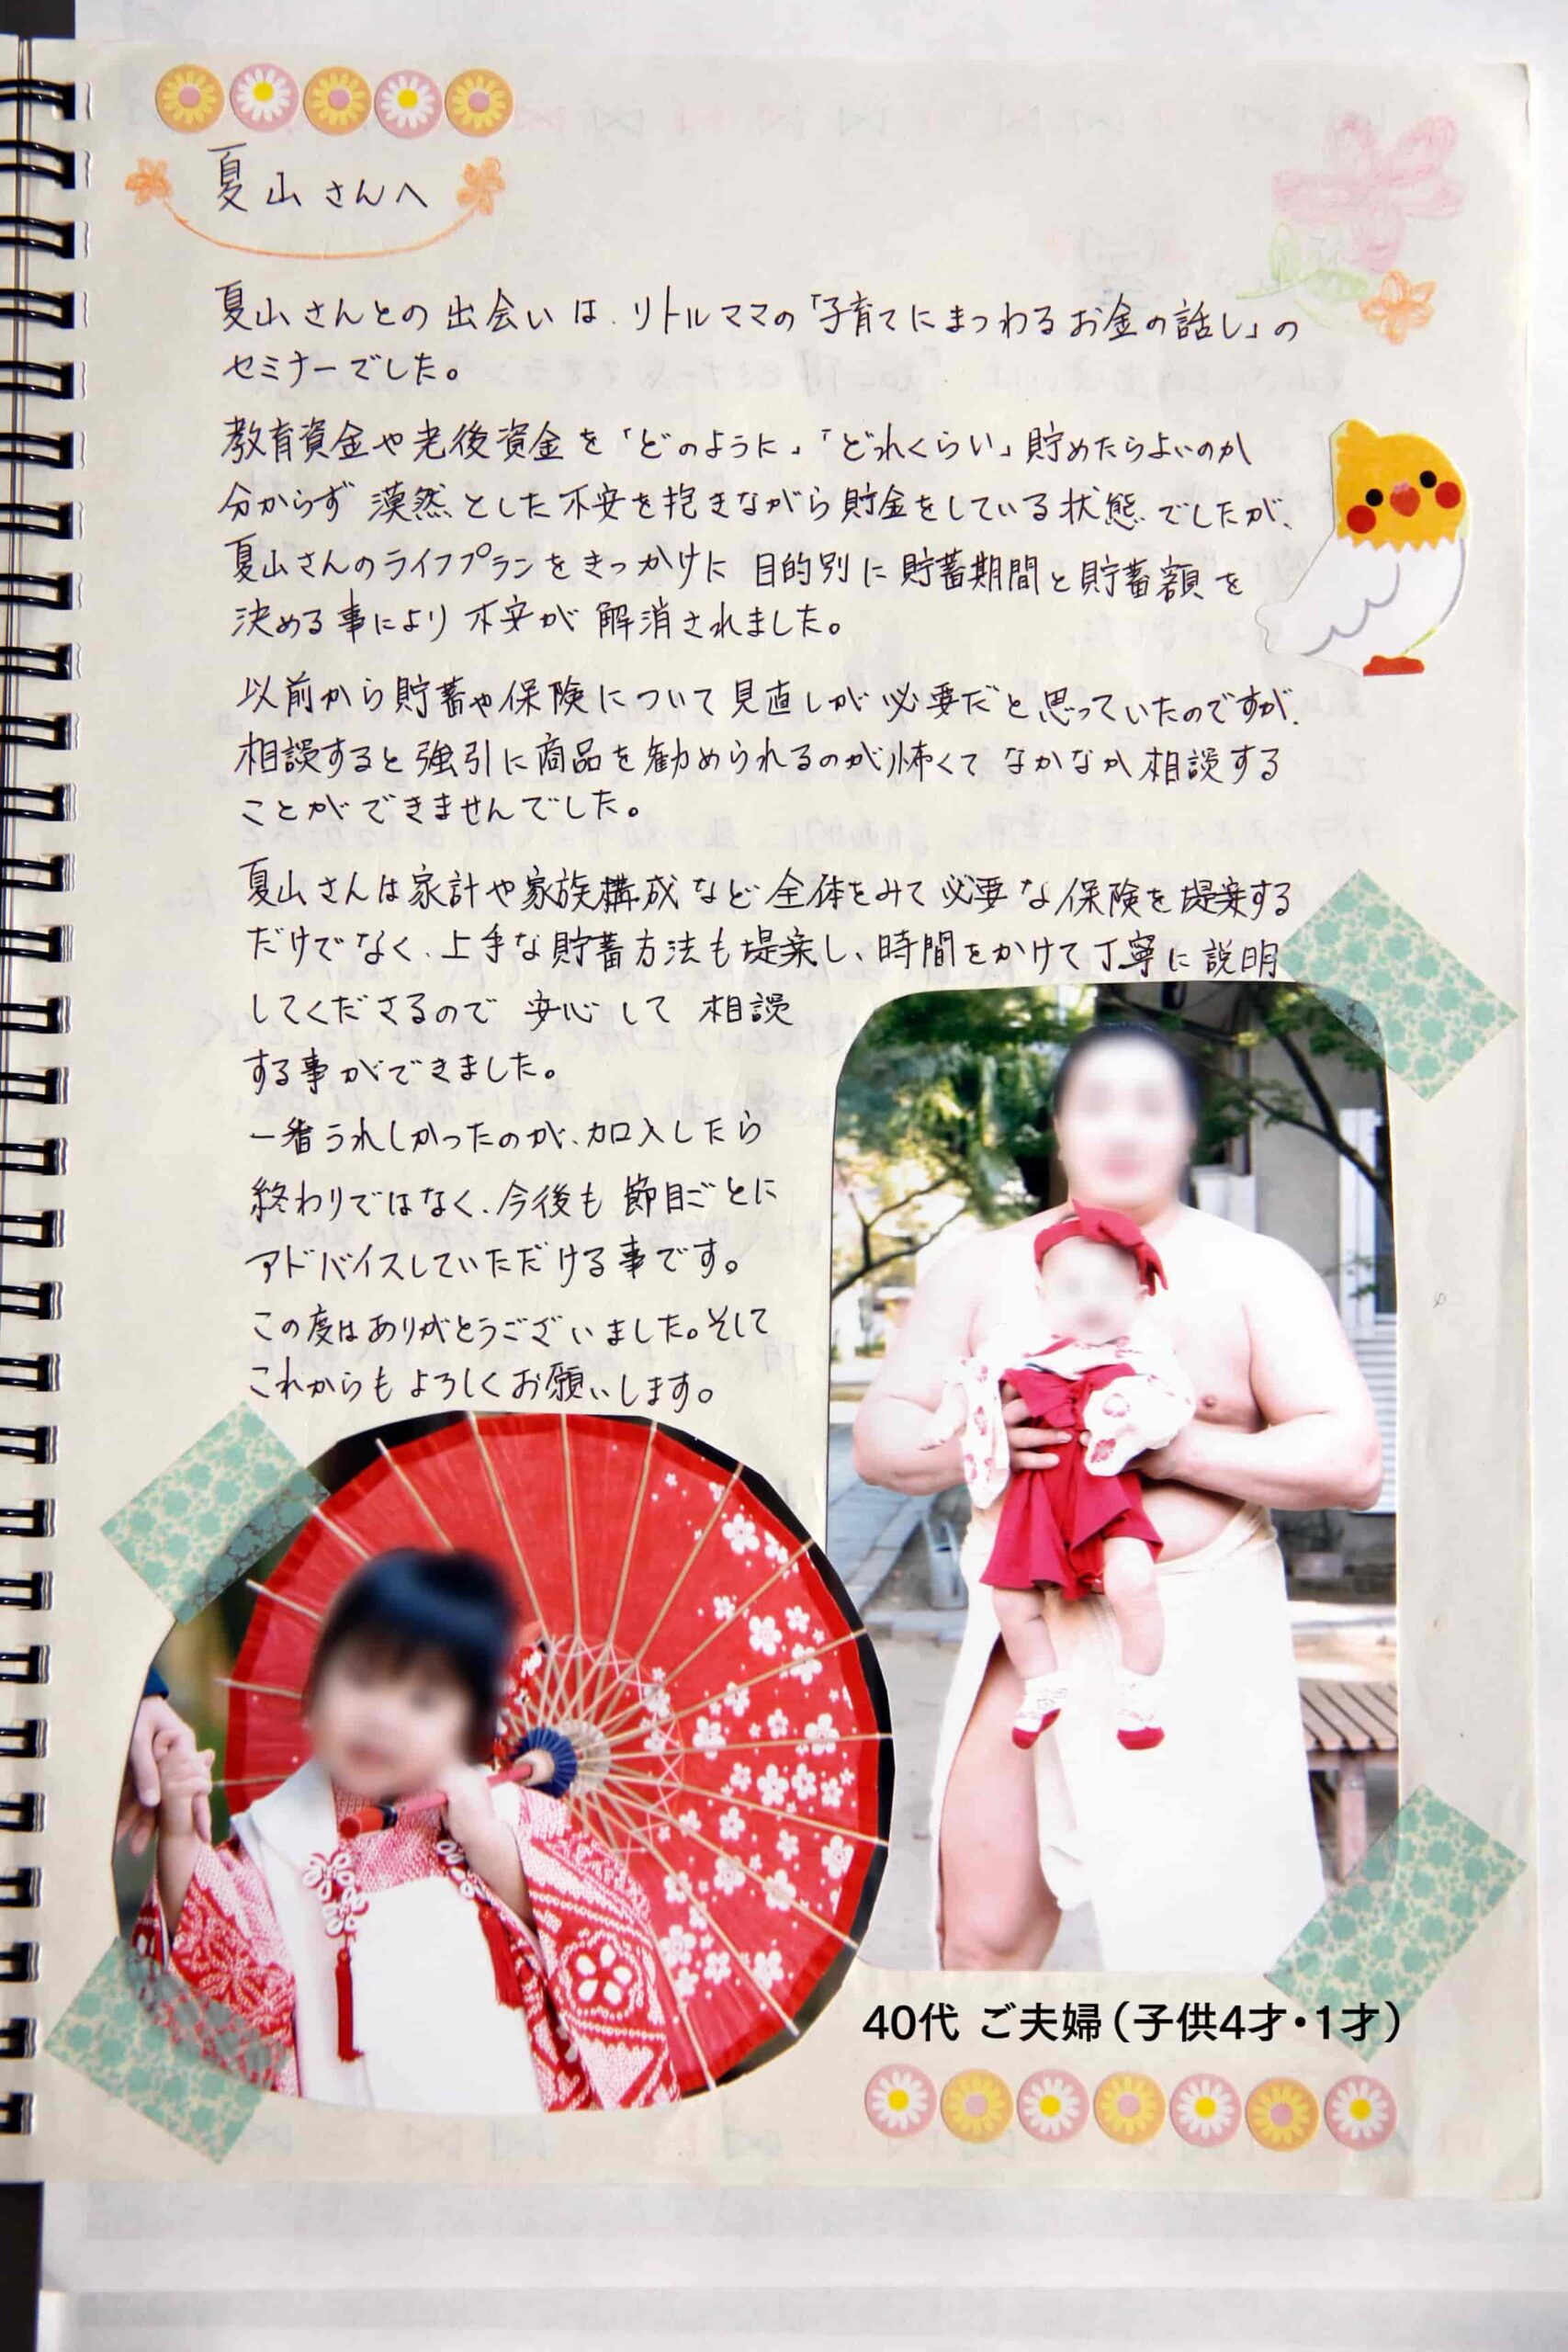 夏山さんへ
夏山さんとの出会いは、リトルママの「子育てにまつわるお金の話し」の
セミナーでした。
教育資金や老後資金を「どのように」「どれくらい」貯めたらよいのか
分からず漠然とした不安を抱きながら貯金をしている状態でしたが、
夏山さんのライフプランをきっかけに目的別に貯蓄期間と貯蓄額を
決める事により不安が解消されました。
以前から貯蓄や保険について見直しが必要だと思っていたのですが、
相談すると強引に商品を勧められるのが怖くてなかなか相談する
ことができませんでした。
夏山さんは家計や家族構成など全体をみて必要な保険を提案する
だけでなく、上手な貯蓄方法も提案し、時間をかけて丁寧に説明
してくださるので安心して相談
する事ができました。
一番うれしかったのが、加入したら
終わりではなく、今後も節目ごとに
アドバイスしていただける事です。
この度はありがとうございました。そして
これからもよろしくお願いします。
40代 ご夫婦（子供4才・1才）